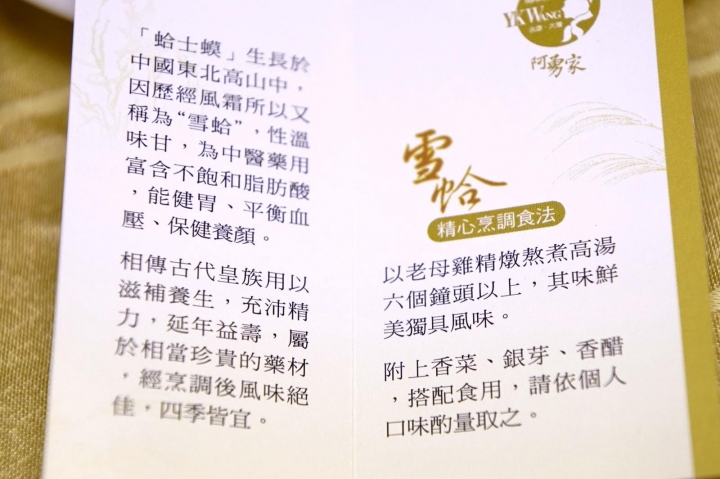 「蛤士蟆」生長於
中國東北高山中，
因歷經風霜所以又
稱為“雪蛤”，性溫
味甘，為中醫藥用
富含不飽和脂肪酸
，能健胃、平衡血
壓、保健養顏。
相傳古代皇族用以
滋補養生，充沛精
力，延年益壽，屬
於相當珍貴的藥材
，經烹調後風味絕
佳，四季皆宜。
YK WANG
阿勇家
雪蛤
精心烹調食法
以老母雞精燉熬煮高湯
六個鐘頭以上，其味鮮
美獨具風味。
附上香菜、銀芽、香醋
，搭配食用，請依個人
口味酌量取之。